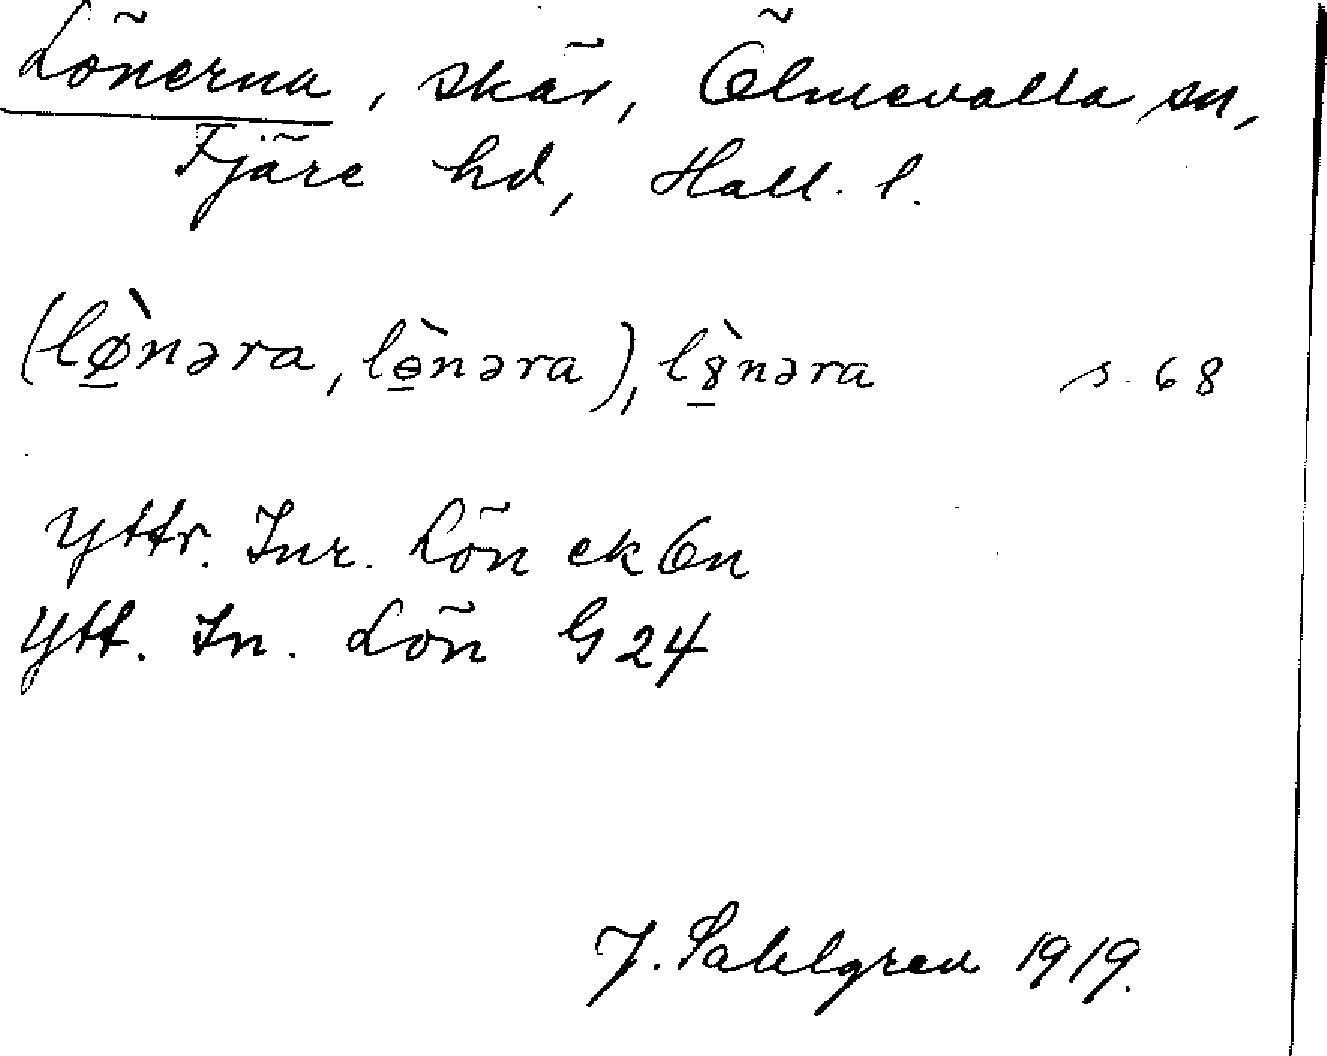 Lönerna, skär, Ölmevalla sn,
Fjäre hd, Hall. l.
(lø̠̀nəra, lɵ̠̀nəra), l8̠̀nəra s. 68
Yttr. Inr. Lön ek Ön
Ytt. In. Lön G 24
J. Sahlgren 1919.